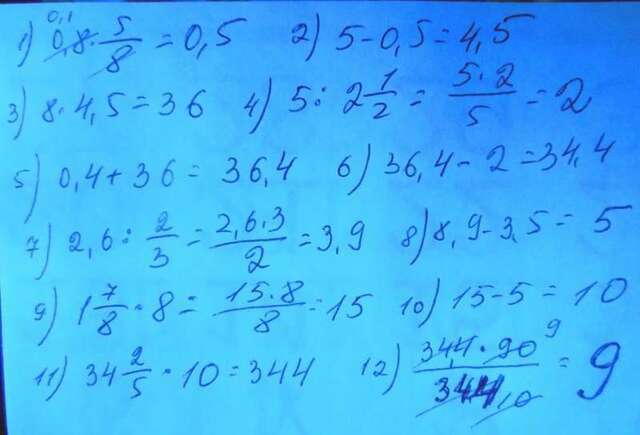 1) 0,8 · 5/8 = 0,5 2) 5 - 0,5 = 4,5
0,1
3) 8 · 4,5 = 36 4) 5 : 2 1/2 = 5·2/5 = 2
5) 0,4 + 36 = 36,4 6) 36,4 - 2 = 34,4
7) 2,6 : 2/3 = 2,6·3/2 = 3,9 8) 8,9 - 3,5 = 5
9) 1 7/8 · 8 = 15·8/8 = 15 10) 15 - 5 = 10
11) 34 2/5 · 10 = 344 12) 34,4 · 90 9/344 10 = 9